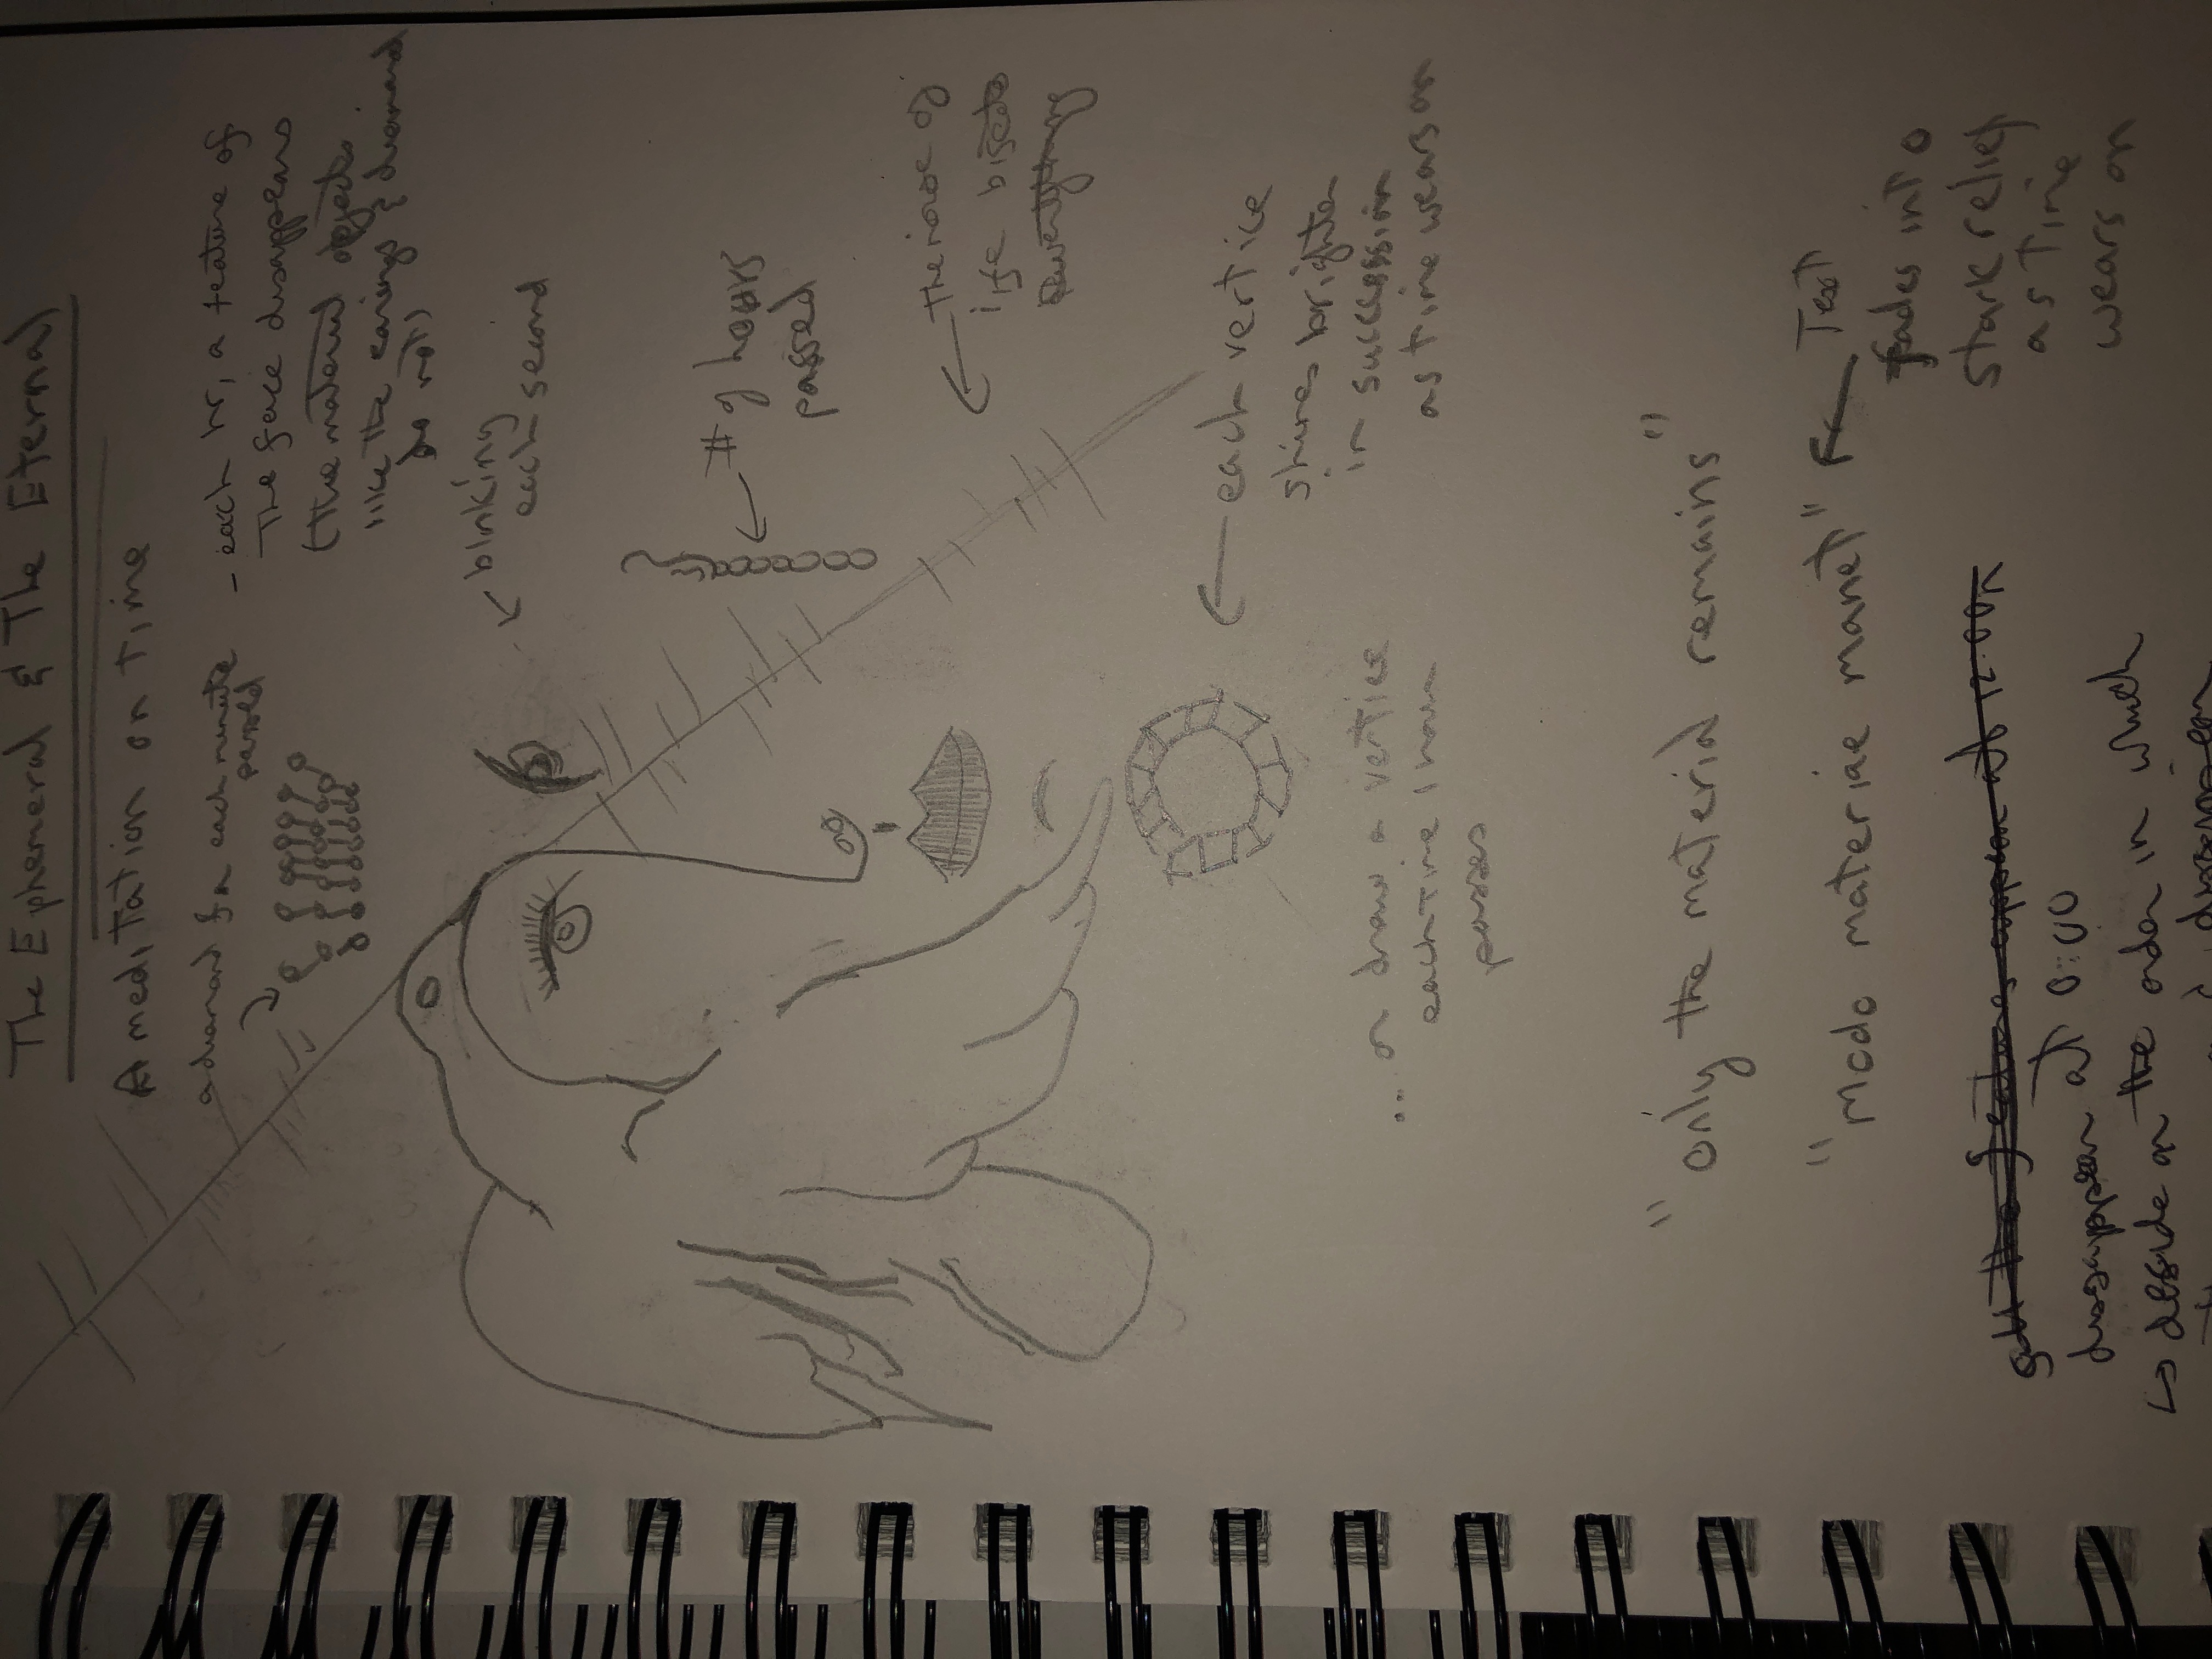 The Ephemeral & The Eternal
A meditation on time
a diamond for each minute
passed
- each hr, a feature of
the face disappears
(the material objects
like the earings & diamond
do not)
blinking
each second
# of hours
passed
the noise of
life bisects
everything
each vertice
shines brighter
in succession
as time wears on
.. or draw a vertice
each time 1 hour
passes
"only the material remains"
"modo materiae manet"
Text
fades into
stark relief
as time
wears on
all the features appear at 12:00
disappear at 0:00
↳ deside on the order in which
disappear